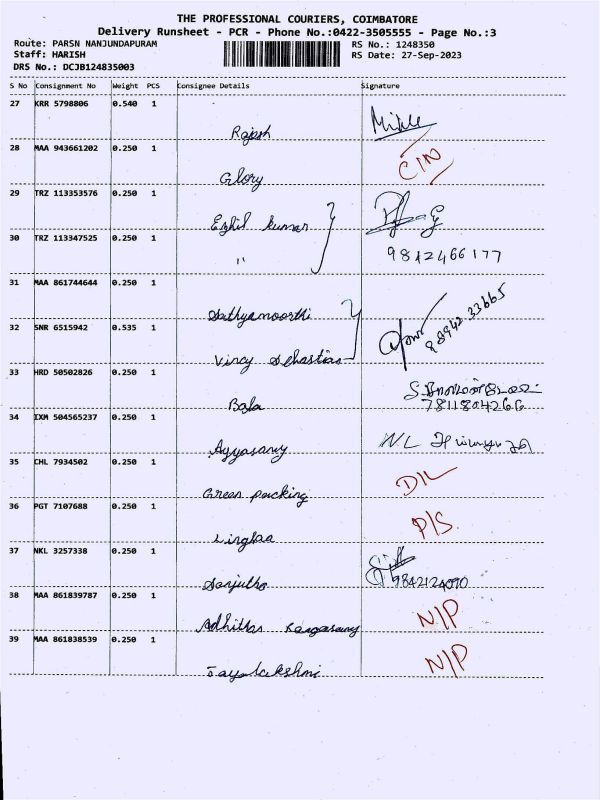 THE PROFESSIONAL COURIERS, COIMBATORE
Delivery Runsheet - PCR - Phone No.:0422-3505555 - Page No.:3
Route: PARSN NANJUNDAPURAM RS No.: 1248350
Staff: HARISH RS Date: 27-Sep-2023
DRS No.: DCJB124835003
S No Consignment No Weight PCS Consignee Details Signature
27 KRR 5798806 0.540 1
Rajesh
28 MAA 943661202 0.250 1
Glory C/N
29 TRZ 113353576 0.250 1
Ezhil kumar
30 TRZ 113347525 0.250 1
" 9842466177
31 MAA 861744644 0.250 1
Sathyamoorthi
32 SNR 6515942 0.535 1
Vincy Sebastian 88942 33665
33 HRD 50502826 0.250 1
Bala 7811804266
34 IXM 504565237 0.250 1
Ayyasamy
35 CHL 7934502 0.250 1
Green packing D/L
36 PGT 7107688 0.250 1
P/S
37 NKL 3257338 0.250 1
9842124090
38 MAA 861839787 0.250 1
N/P
39 MAA 861838539 0.250 1
Jayalakshmi N/P